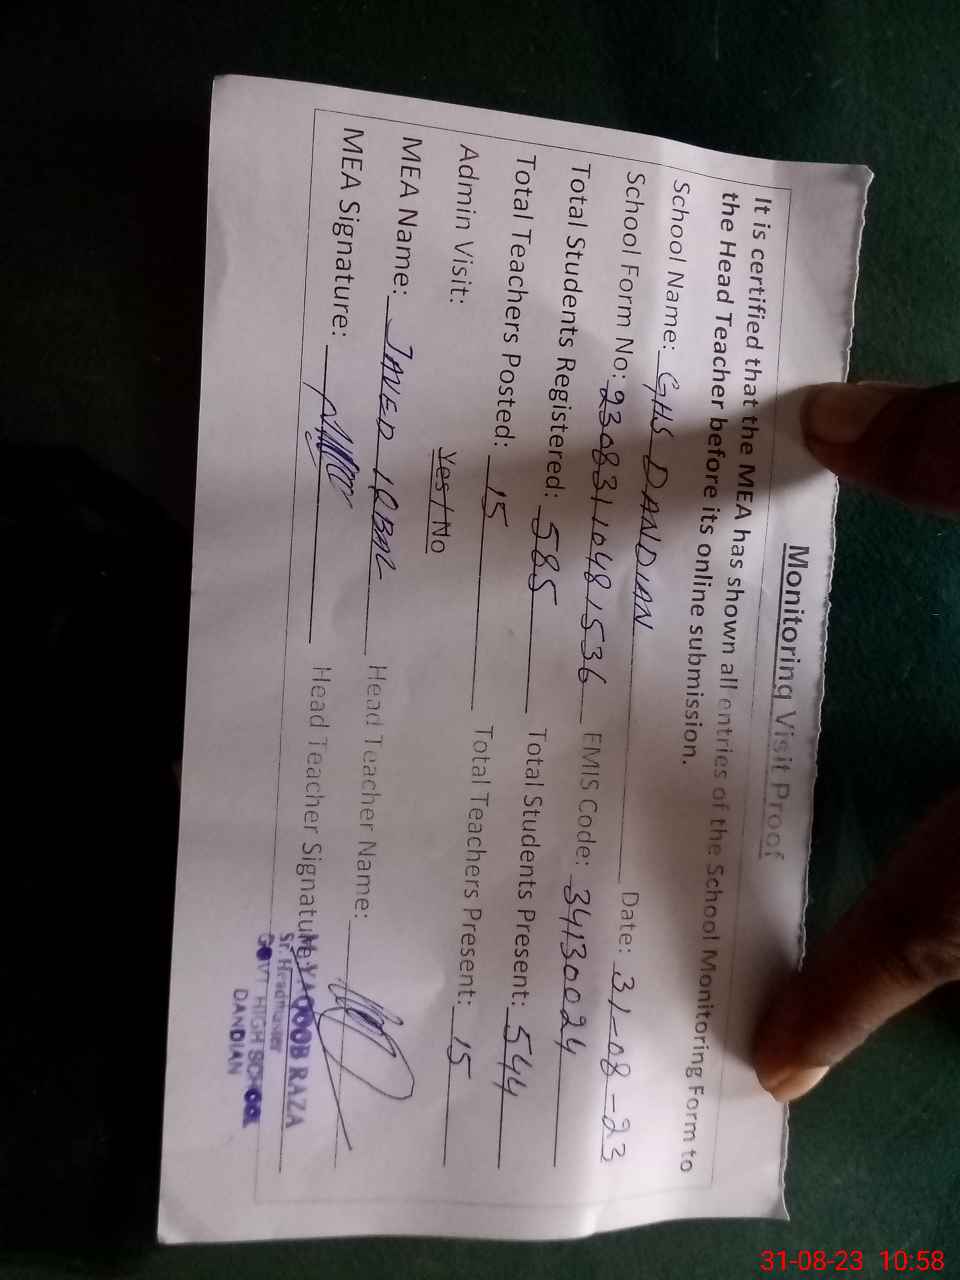 Monitoring Visit Proof
It is certified that the MEA has shown all entries of the School Monitoring Form to
the Head Teacher before its online submission.
School Name: GHS DANDIAN Date: 31-08-23
School Form No: 230831 1048 1536 EMIS Code: 34130024
Total Students Registered: 585 Total Students Present: 544
Total Teachers Posted: 15 Total Teachers Present: 15
Admin Visit: Yes / No
MEA Name: JAVED IQBAL Head Teacher Name:
MEA Signature: Head Teacher Signature:
YAQOOB RAZA
Sr. Headmaster
GOVT HIGH SCHOOL
DANDIAN
31-08-23 10:58